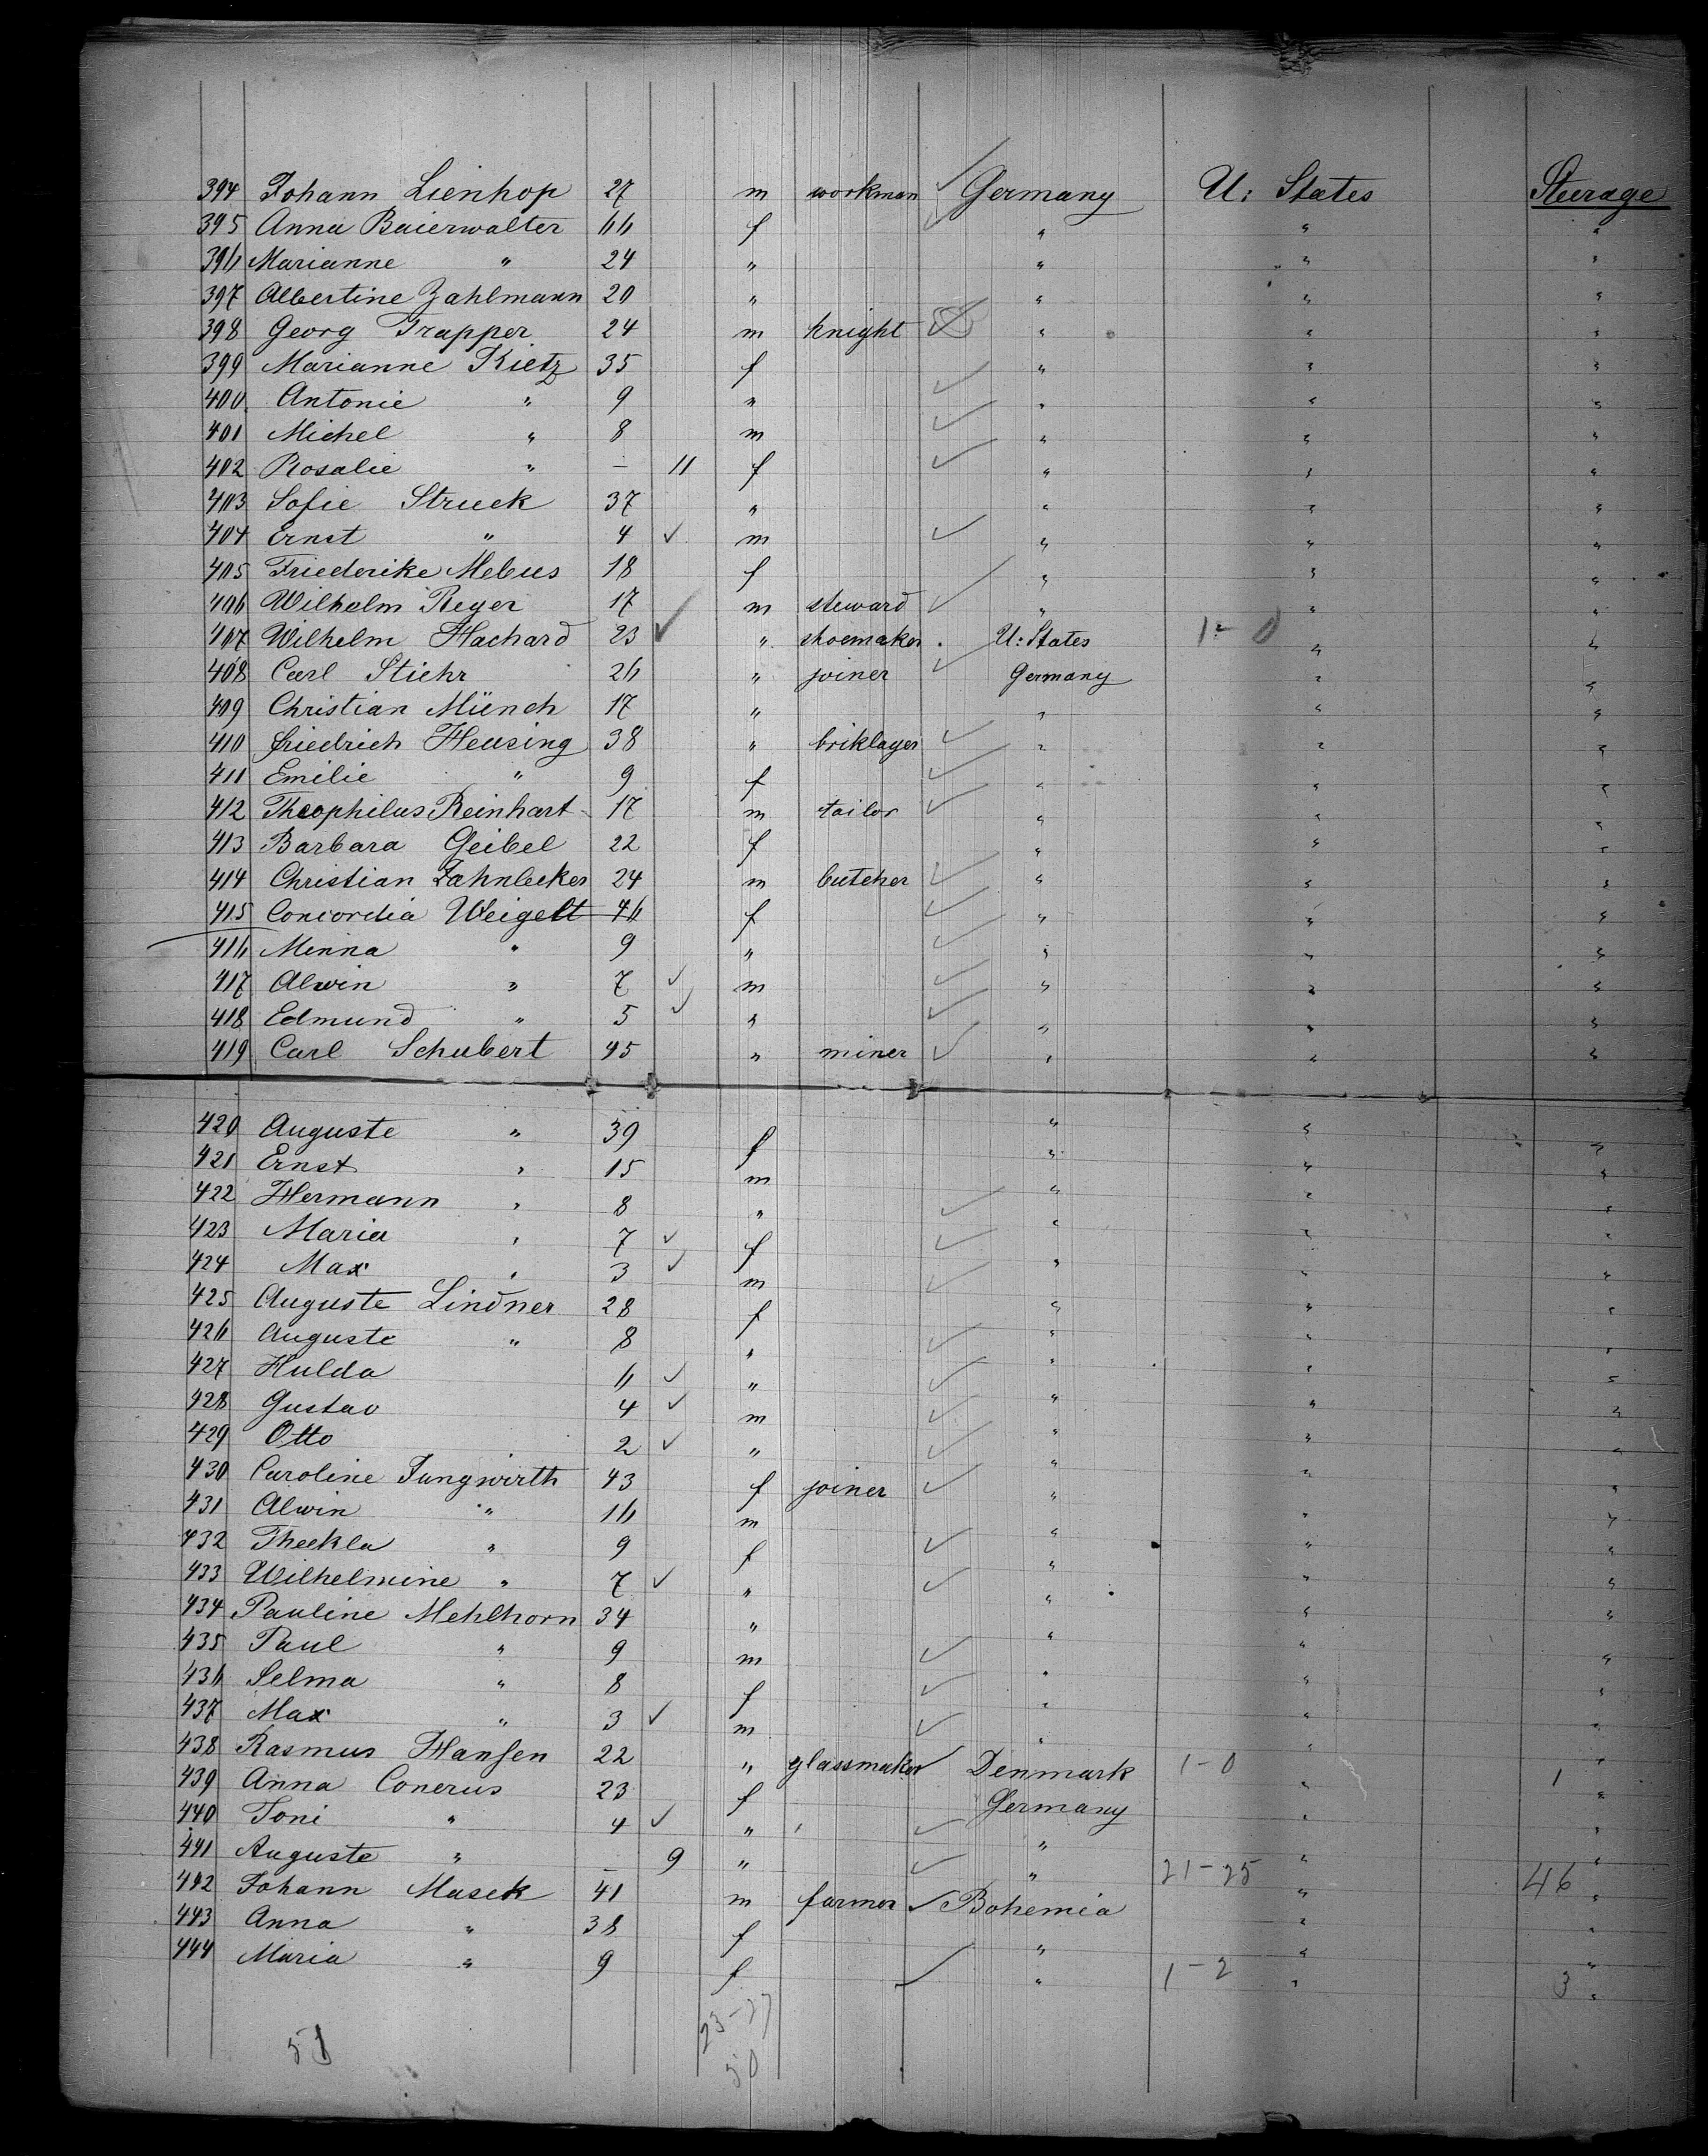 394 Johann Lienhop 27 m workman Germany U: States Steerage
395 Anna Baierwalter 66 f " " "
396 Marianne " 24 " " " "
397 Albertine Zahlmann 20 " " " "
398 Georg Trapper 24 m knight " " "
399 Marianne Kietz 35 f " " "
400 Antonie " 9 " " " "
401 Michel " 8 m " " "
402 Rosalie " – 11 f " " "
403 Sofie Struck 37 " " " "
404 Ernst " 4 m " " "
405 Friederike Mebus 18 f " " "
406 Wilhelm Reyer 17 m steward " " "
407 Wilhelm Hachard 23 " shoemaker U: States 1-0 " "
408 Carl Stiehr 26 " joiner Germany " "
409 Christian Münch 17 " " " "
410 Friedrich Heusing 38 " briklayer " " "
411 Emilie " 9 f " " "
412 Theophilus Reinhart 17 m tailor " " "
413 Barbara Geibel 22 f " " "
414 Christian Zahnlecker 24 m butcher " " "
415 Concordia Weigelt 46 f " " "
416 Minna " 9 " " " "
417 Alwin " 7 m " " "
418 Edmund " 5 " " " "
419 Carl Schubert 45 " miner " " "
420 Auguste " 39 f " " "
421 Ernst " 15 m " " "
422 Hermann " 8 " " " "
423 Maria " 7 f " " "
424 Max " 3 m " " "
425 Auguste Lindner 28 f " " "
426 Auguste " 8 " " " "
427 Hulda 6 " " " "
428 Gustav 4 m " " "
429 Otto 2 " " " "
430 Caroline Jungwirth 43 f joiner " " "
431 Alwin " 16 m " " "
432 Theekla " 9 f " " "
433 Wilhelmine " 7 " " " "
434 Pauline Mehlhorn 34 " " " "
435 Paul " 9 m " " "
436 Selma " 8 f " " "
437 Max " 3 m " " "
438 Rasmus Hansen 22 " glassmaker Denmark 1-0 " 1 "
439 Anna Conerus 23 f Germany " "
440 Toni " 4 " " " "
441 Auguste " – 9 " " 21-25 " 46 "
442 Johann Masek 41 m farmer Bohemia " "
443 Anna " 38 f " " "
444 Maria " 9 f " 1-2 " 3 "
23-27
51 50